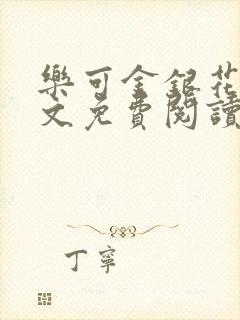 樂可金銀花
文免費閱讀
丁寧